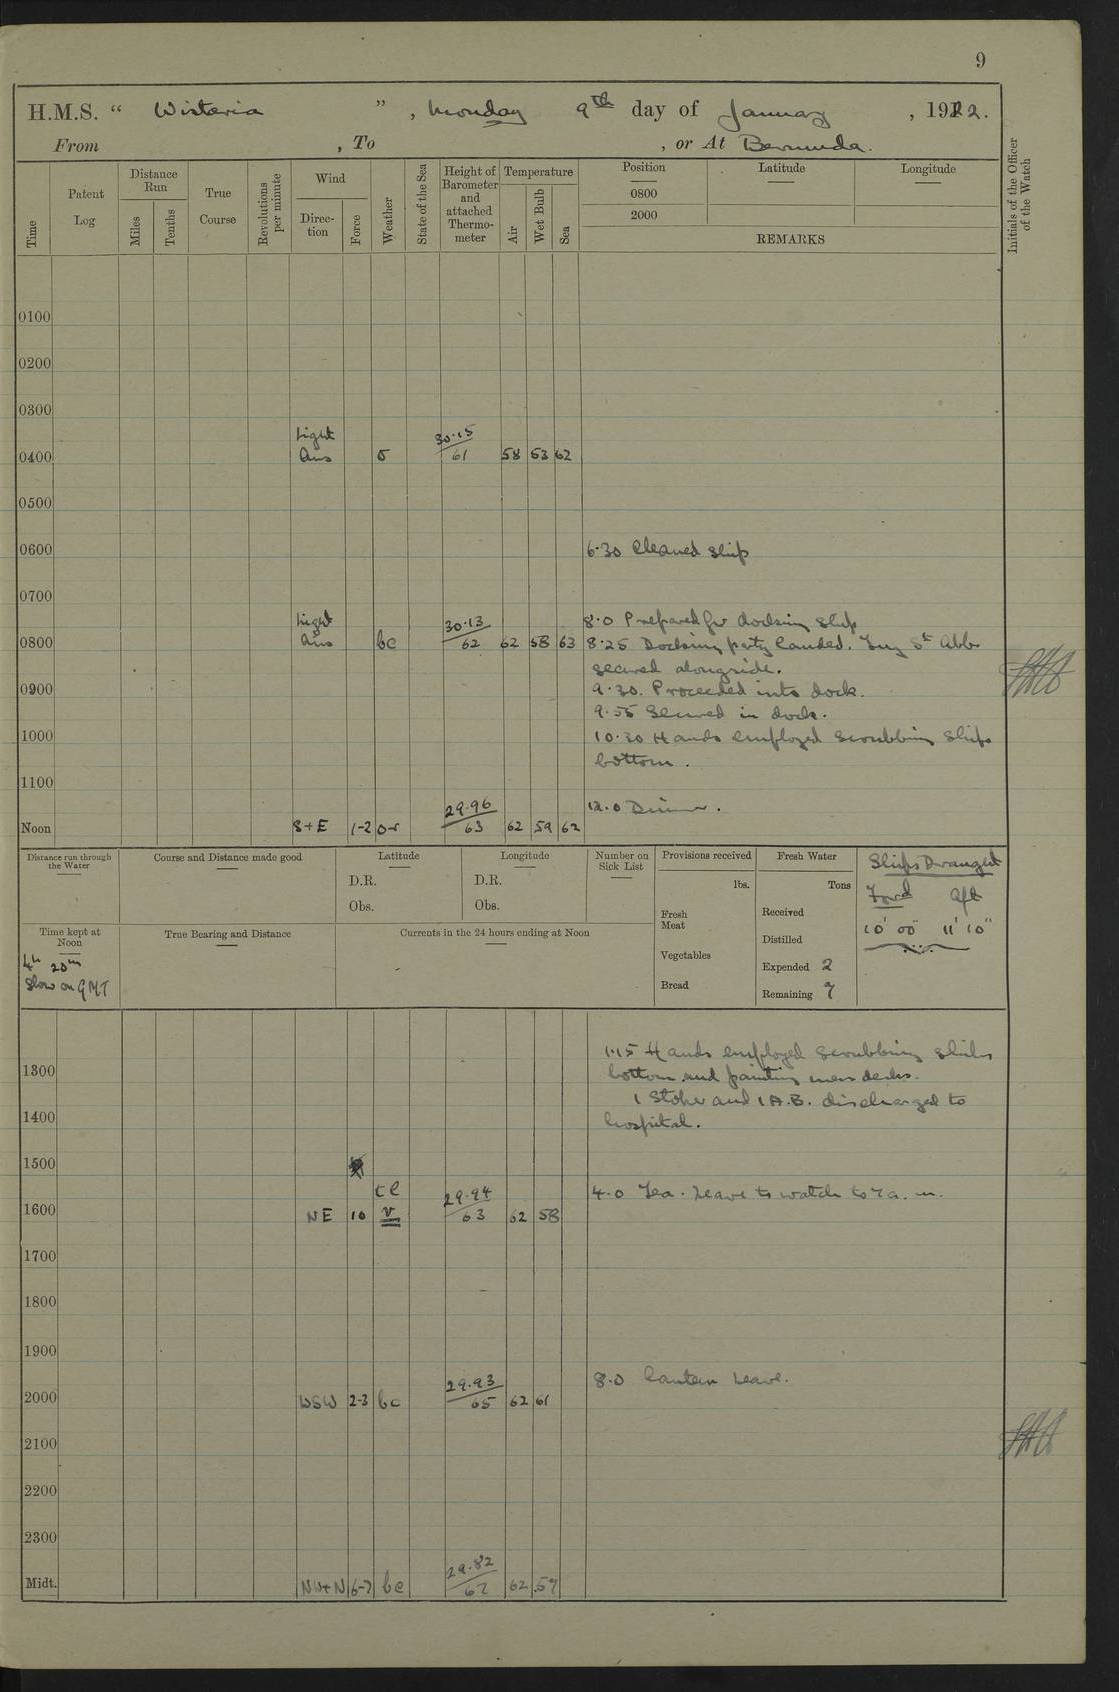 9
H.M.S. “ Wistaria ”, Monday 9th day of January, 1922.
From , To , or At Bermuda.
Time
Patent Log
Distance Run
Miles
Tenths
True Course
Revolutions per minute
Wind
Direc- tion
Force
Weather
State of the Sea
Height of Barometer and attached Thermo- meter
Temperature
Air
Wet Bulb
Sea
Position
0800
2000
Latitude
Longitude
REMARKS
Initials of the Officer of the Watch
0100
0200
0300
Light 30.15
0400 Airs o 61 58 53 62
0500
0600 6.30 Cleaned ship
0700
Light 30.13 8.0 Prepared for docking ship
0800 Airs bc 62 62 58 63 8.25 Docking party landed. Tug St Abbs
secured alongside.
0900 9.30. Proceeded into dock.
9.55 Secured in dock.
1000 10.30 Hands employed scrubbing ships
bottom.
1100
29.96 12.0 Dinner.
Noon S+E 1-2 or 63 62 59 62
Distance run through the Water
Course and Distance made good
Latitude
D.R.
Obs.
Longitude
D.R.
Obs.
Number on Sick List
Provisions received
lbs.
Fresh Meat
Vegetables
Bread
Fresh Water
Tons
Received
Distilled
Expended 2
Remaining 7
Ships Draught
Ford Aft
10' 00" 11' 10"
Time kept at Noon
4h 20m
Slow on GMT
True Bearing and Distance
Currents in the 24 hours ending at Noon
1.15 Hands employed scrubbing ships
1300 bottom and painting mess decks.
1 Stoker and 1 A.B. discharged to
1400 hospital.
1500
29.94 4.0 Tea. Leave to watch to 7 a.m.
1600 NE 10 v 63 62 58
1700
1800
1900
29.93 8.0 Canteen Leave.
2000 WSW 2-3 bc 65 62 61
2100
2200
2300
29.82
Midt. NW+N 6-7 bc 67 62 57